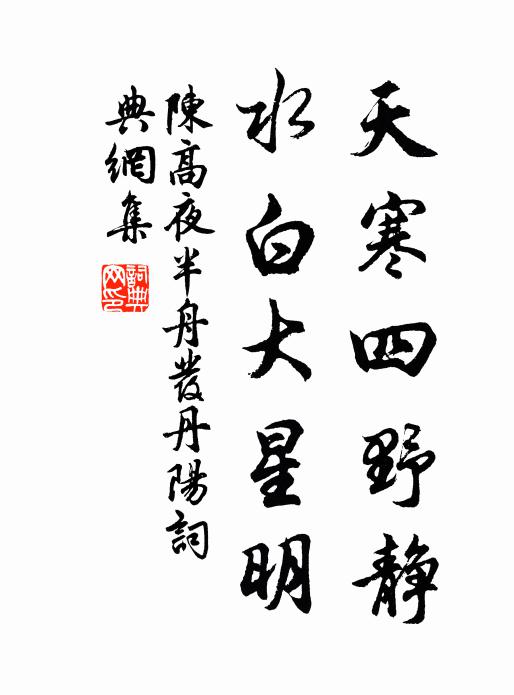 天寒四野静
水白大星明
陳高夜半舟發丹陽詞
典網集
詞典網印